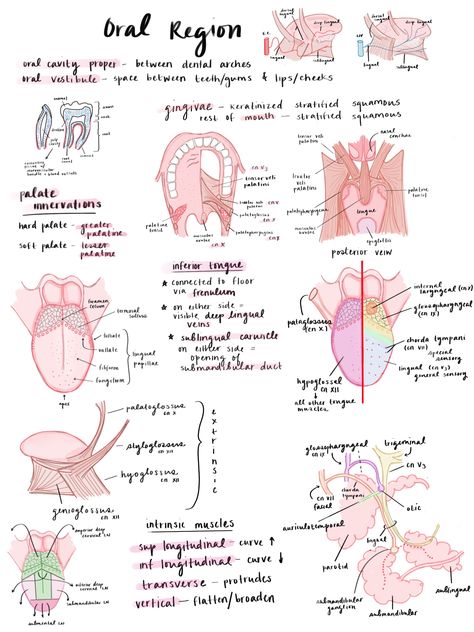 Oral Region
oral cavity proper - between dental arches
oral vestibule - space between teeth/gums & lips/cheeks
dorsal lingual
deep lingual
lingual
sublingual
dorsal lingual
deep lingual
lingual
sublingual
gingivae - keratinized stratified squamous
rest of mouth - stratified squamous
palate innervations
hard palate - greater palatine
soft palate - lesser palatine
cn V3
tensor veli palatini
levator veli palatini
palatoglossus
palatopharyngeus
palatine tonsil
musculus uvulae
cn X
tensor veli palatini
nasal conchae
levator veli palatini
palatopharyngeus
musculus uvulae
palatine tonsil
tongue
epiglottis
posterior veiw
inferior tongue
* connected to floor via frenulum
* on either side = visible deep lingual veins
* sublingual caruncle on either side = opening of submandibular duct
foramen cecum
terminal sulcus
foliate
vallate
filiform
fungiform
lingual papillae
apex
palatoglossus (cn X)
internal laryngeal (cn X)
glossopharyngeal (cn IX)
chorda tympani (cn VII)
special sensory
lingual (cn V3)
general sensory
hypoglossal cn XII
all other tongue muscles
palatoglossus
cn X
styloglossus
cn XII
hyoglossus
cn XII
genioglossus
cn XII
extrinsic
intrinsic muscles
sup longitudinal - curve ↑
inf longitudinal - curve ↓
transverse - protrudes
vertical - flatten/broaden
superior deep cervical LN
inferior deep cervical LN
submandibular LN
submental LN
glossopharyngeal
cn IX
trigeminal
cn V3
cn VII
facial
chorda tympani
auriculotemporal
otic
parotid
lingual
submandibular ganglion
submandibular
sublingual